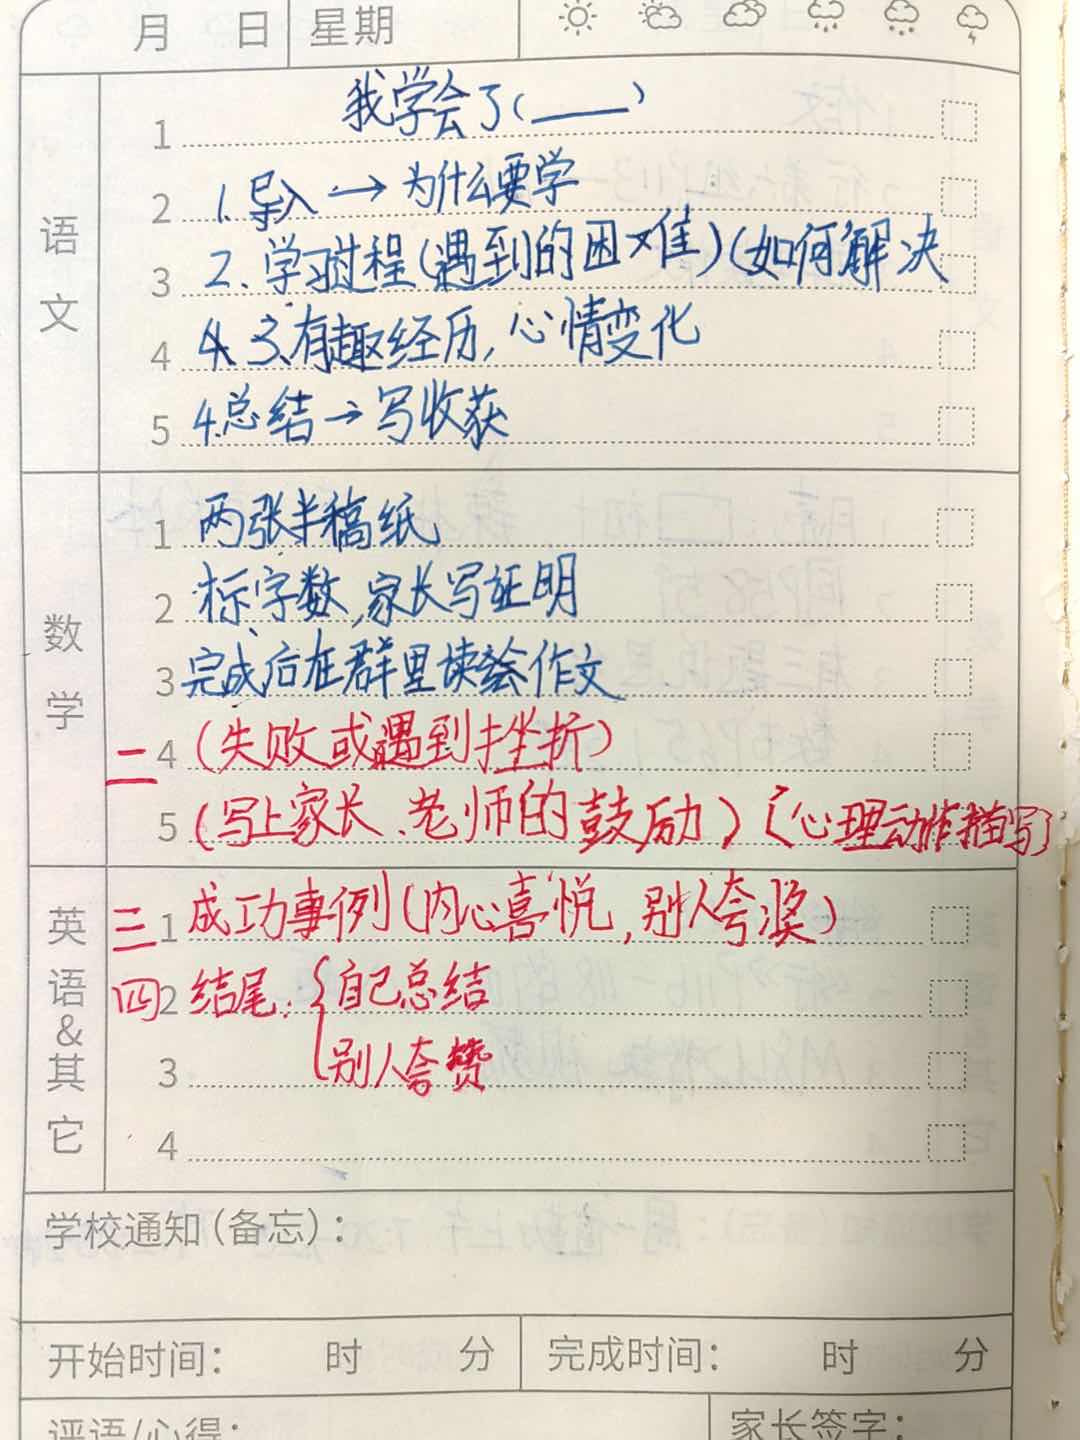 月 日 星期
语文
1 我学会了(____)
2 1.导入→为什么要学
3 2.学习过程(遇到的困难)(如何解决
4 3.有趣经历,心情变化
5 4.总结→写收获
数学
1 两张半稿纸
2 标字数,家长写证明
3 完成后在群里读绘作文
二 4 (失败或遇到挫折)
5 (写上家长、老师的鼓励)(心理动作描写)
英语&其它
三 1 成功事例(内心喜悦,别人夸奖)
四 2 结尾:{自己总结
3 别人夸赞
4
学校通知(备忘):
开始时间: 时 分 完成时间: 时 分
评语/心得: 家长签字: